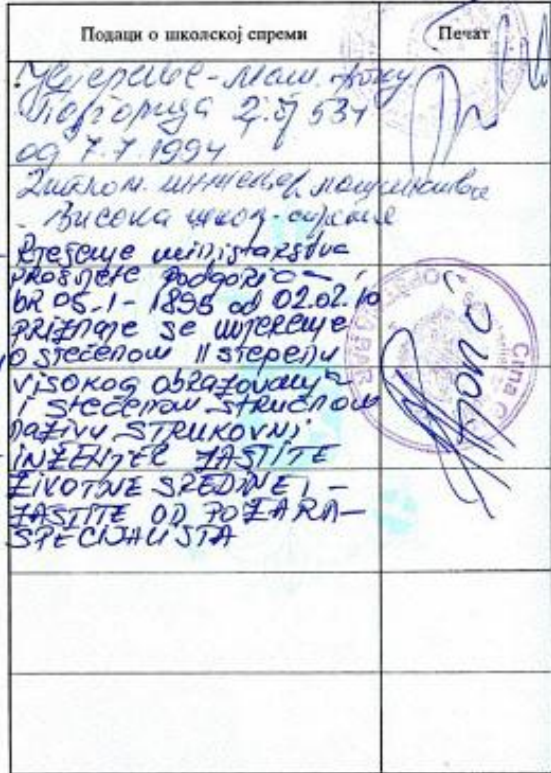 Подаци о школској спреми
Печат
Увјерење - Маш. фак.
Подгорица 2. бј 534
од 7. 7. 1994
Диплом. инжењер машинства
- Висока школ. спрема
Rješenje ministarstva
PROSVJETE PODGORICA
bR 05-1-1895 od 02.02.10
PRIZNAJE SE UVJERENJE
O STEČENOM II STEPENU
VISOKOG obRAZOVANJA
I STEČENOM STRUČNOM
NAZIVU STRUKOVNI
INŽENJER ZAŠTITE
ŽIVOTNE SREDINE I -
ZAŠTITE OD POŽARA -
SPECIJALISTA
Crna G
BAR